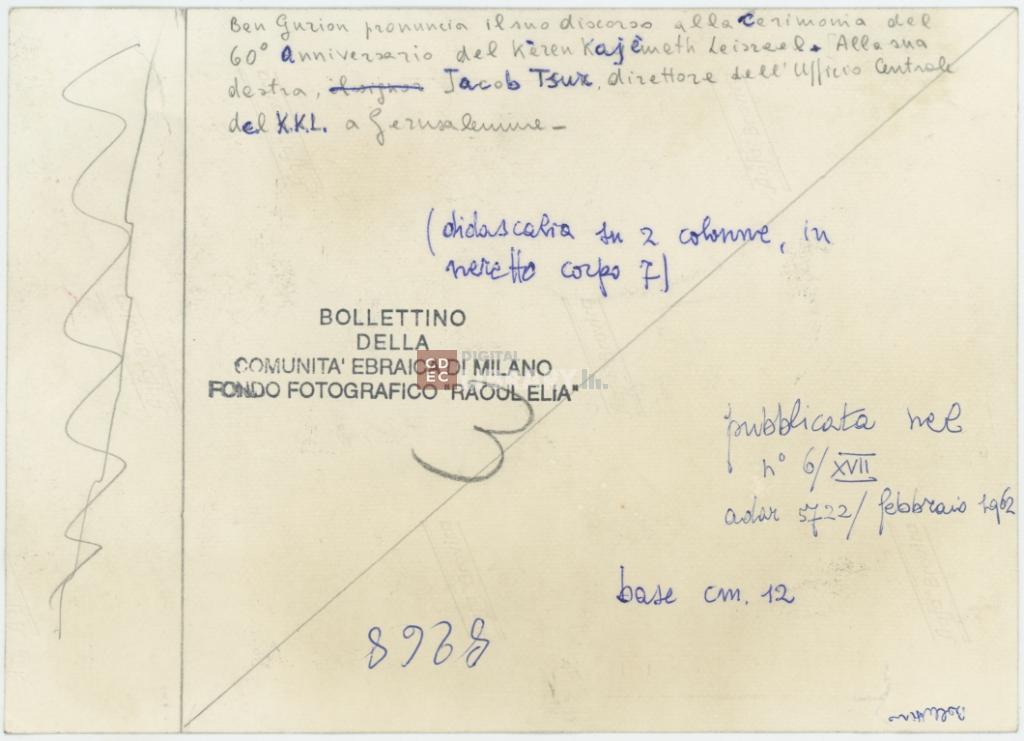 Ben Gurion pronuncia il suo discorso alla Cerimonia del
60° anniversario del Kèren Kajèmeth Leisrael. Alla sua
destra, il signor Jacob Tsur, direttore dell'Ufficio Centrale
del K.K.L. a Gerusalemme -
(didascalia su 2 colonne, in
neretto corpo 7)
BOLLETTINO
DELLA
COMUNITA' EBRAICA DI MILANO
FONDO FOTOGRAFICO "RAOUL ELIA"
GDEC DIGITAL LIBRARY
3
pubblicata nel
n° 6/XVII
adar 5722/febbraio 1962
base cm. 12
8968